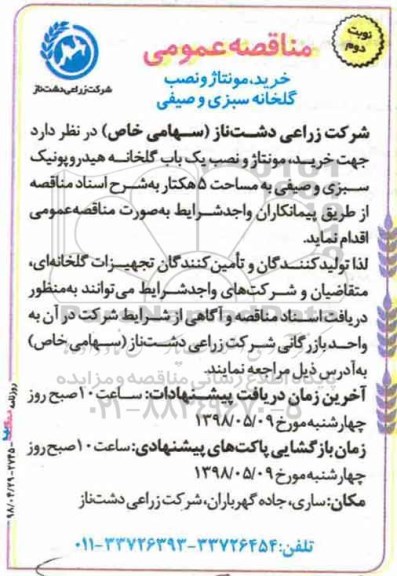 نوبت دوم
مناقصه عمومی
خرید، مونتاژ و نصب
گلخانه سبزی و صیفی
شرکت زراعی دشت‌ناز
شرکت زراعی دشت‌ناز (سهامی خاص) در نظر دارد
جهت خرید، مونتاژ و نصب یک باب گلخانه هیدروپونیک
سبزی و صیفی به مساحت ۵ هکتار به‌شرح اسناد مناقصه
از طریق پیمانکاران واجدشرایط به‌صورت مناقصه‌عمومی
اقدام نماید.
لذا تولیدکنندگان و تأمین‌کنندگان تجهیزات گلخانه‌ای،
متقاضیان و شرکت‌های واجدشرایط می‌توانند به‌منظور
دریافت اسناد مناقصه و آگاهی از شرایط شرکت در آن به
واحد بازرگانی شرکت زراعی دشت‌ناز (سهامی خاص)
به‌آدرس ذیل مراجعه نمایند.
پایگاه اطلاع رسانی مناقصه و مزایده
۰۲۱-۸۸۳۴۹۶۷۰-۵
آخرین زمان دریافت پیشنهادات: ساعت ۱۰ صبح روز
چهارشنبه مورخ ۱۳۹۸/۰۵/۰۹
زمان بازگشایی پاکت‌های پیشنهادی: ساعت ۱۰ صبح روز
چهارشنبه مورخ ۱۳۹۸/۰۵/۰۹
مکان: ساری، جاده گهرباران، شرکت زراعی دشت‌ناز
تلفن: ۳۳۷۲۶۴۵۴-۳۳۷۲۶۳۹۳-۰۱۱
روزنامه
۹۸/۰۴/۲۹-۲۷۴۵